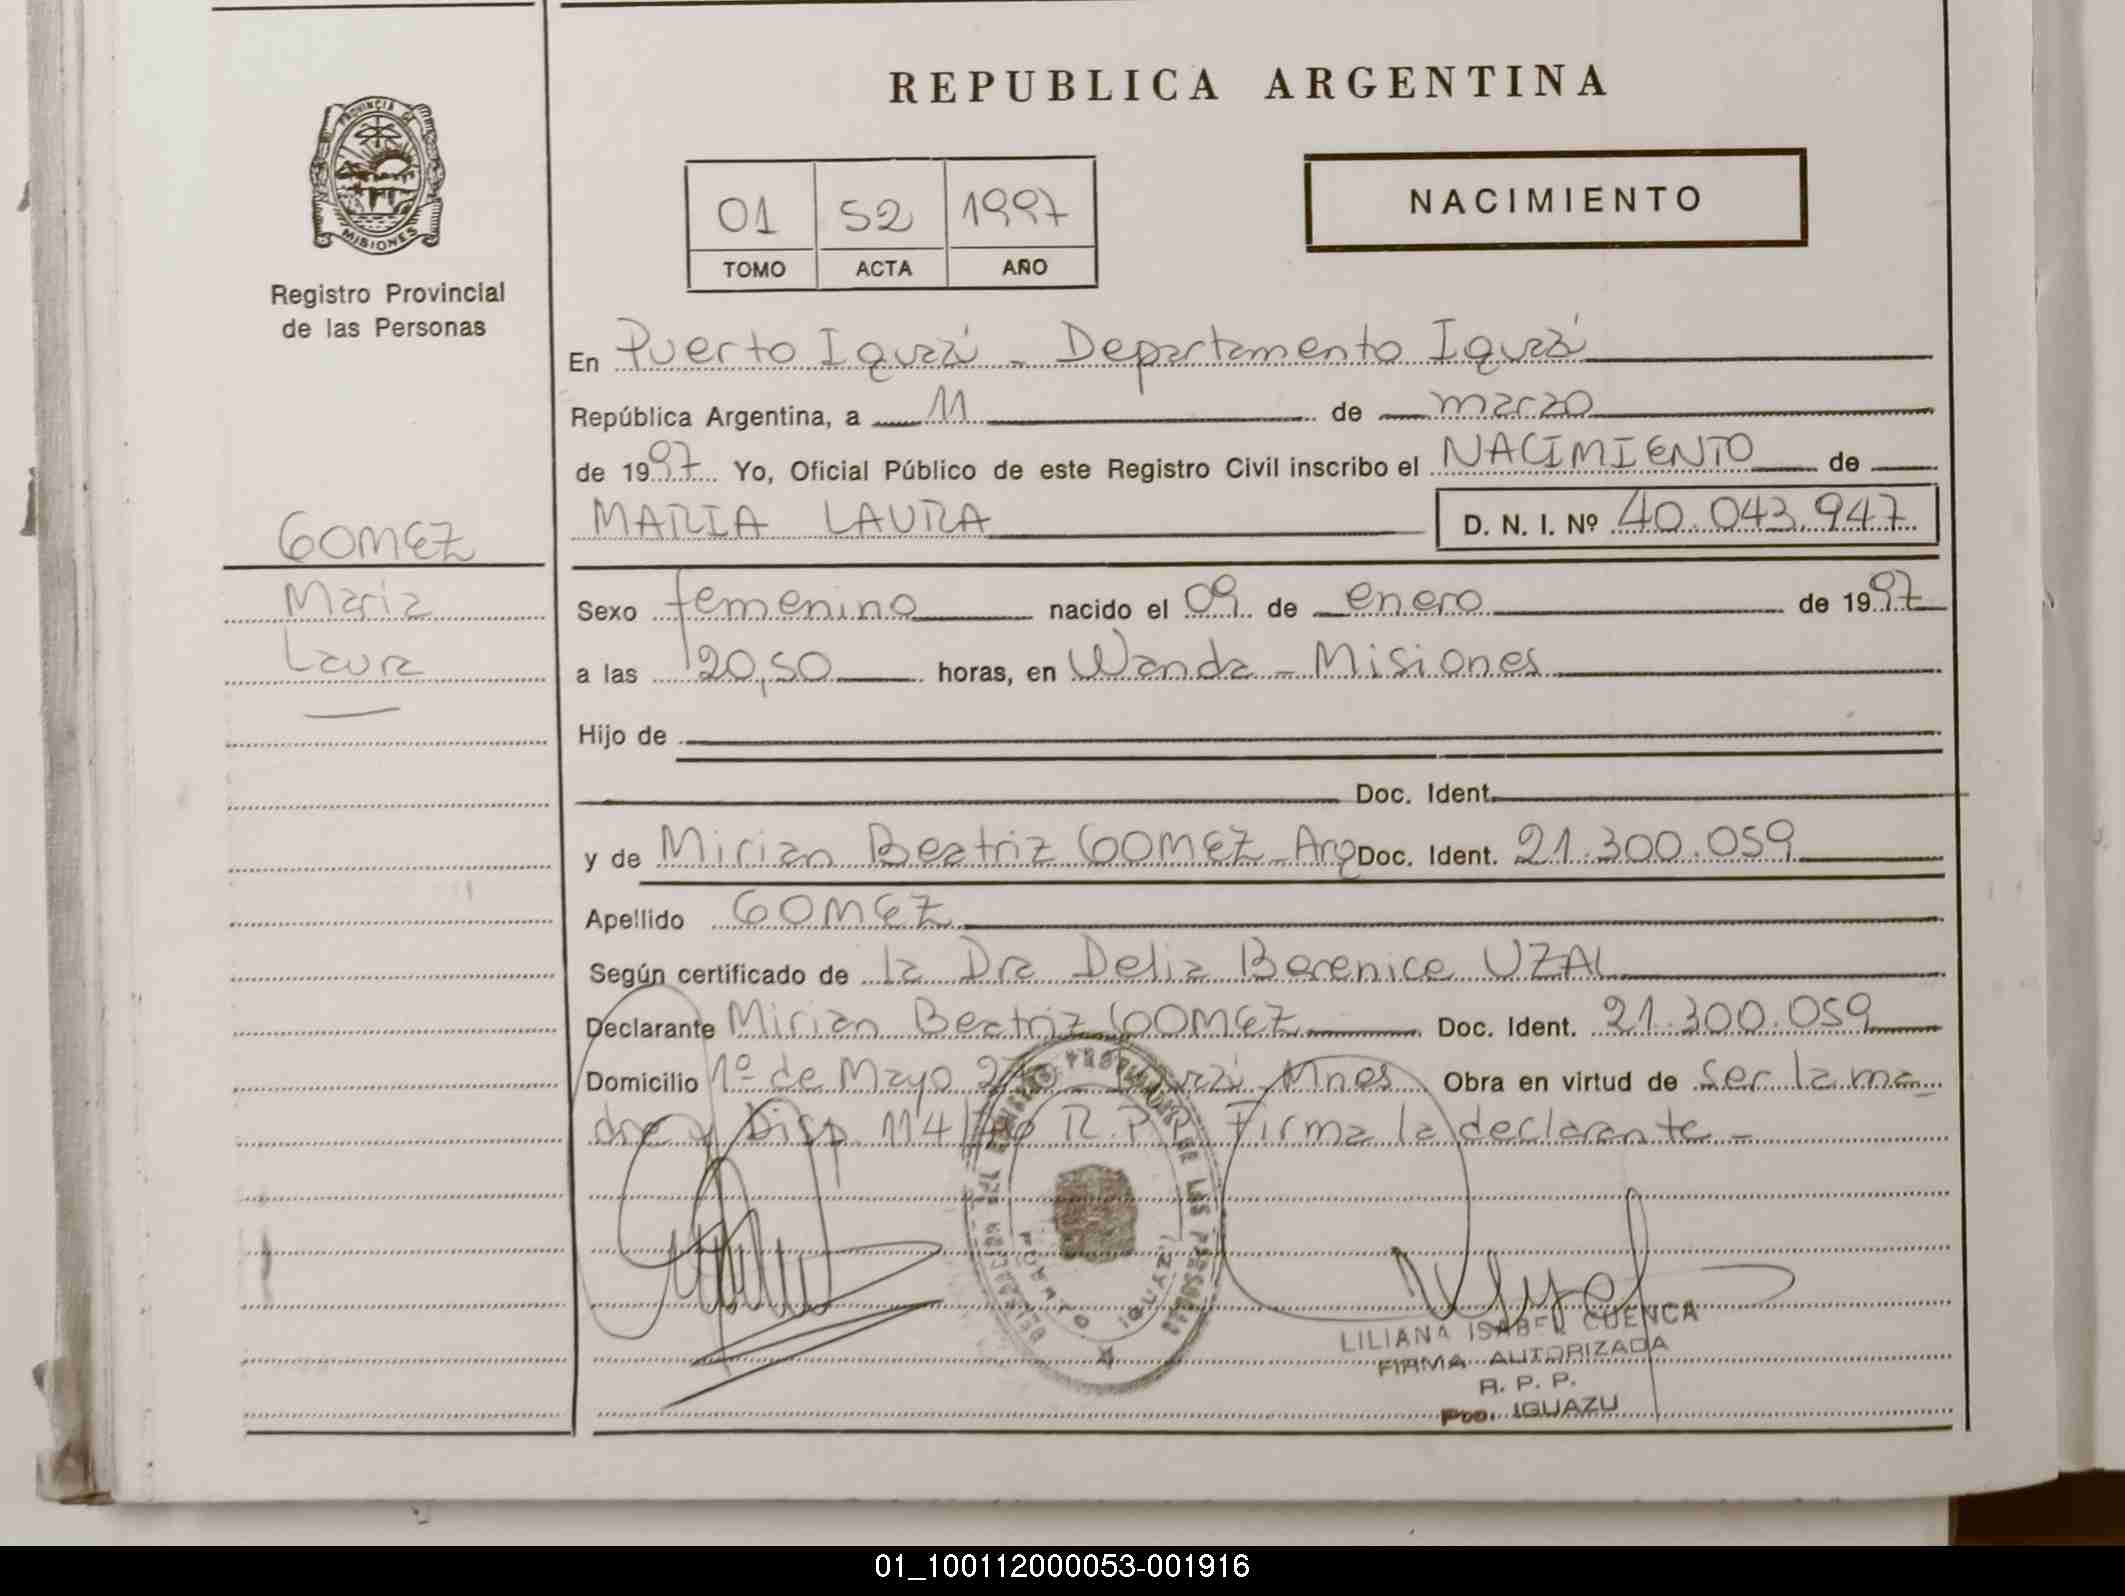 REPUBLICA ARGENTINA
PROVINCIA DE
MISIONES
Registro Provincial
de las Personas
01 52 1997
TOMO ACTA AÑO
NACIMIENTO
En Puerto Iguazú - Departamento Iguazú
República Argentina, a 11 de marzo
de 1997 Yo, Oficial Público de este Registro Civil inscribo el NACIMIENTO de
MARIA LAURA D. N. I. Nº 40.043.947
GOMEZ
Maria
Laura
Sexo femenino nacido el 09 de enero de 1997
a las 20,50 horas, en Wanda - Misiones
Hijo de
Doc. Ident.
y de Mirian Beatriz GOMEZ - Arg Doc. Ident. 21.300.059
Apellido GOMEZ
Según certificado de la Dra Delia Berenice UZAL
Declarante Mirian Beatriz GOMEZ Doc. Ident. 21.300.059
Domicilio 1º de Mayo Mnes Obra en virtud de ser la ma
dre y Disp. 114 R.P.P. Firma la declarante -
DE LAS PERSONAS
PUERTO IGUAZU
LILIANA ISABEL CUENCA
FIRMA AUTORIZADA
R. P. P.
Pto. IGUAZU
01_100112000053-001916